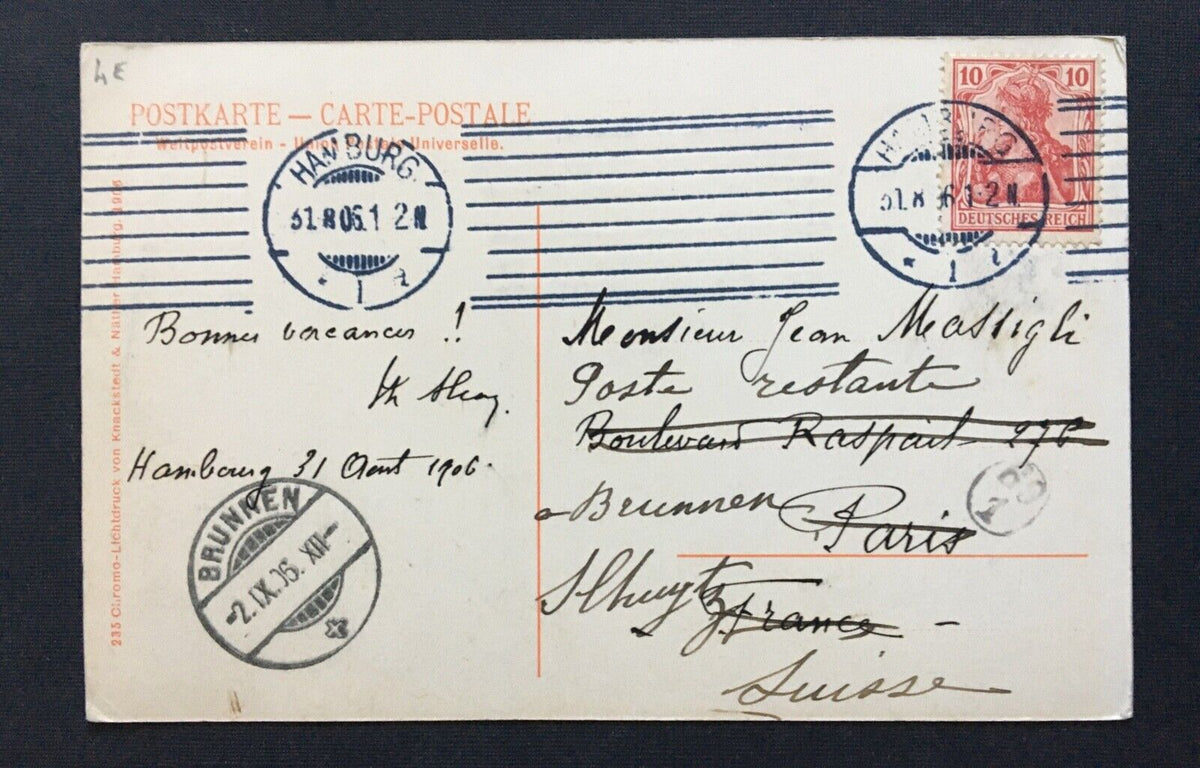 4E
POSTKARTE — CARTE-POSTALE
Weltpostverein - Union Postale Universelle.
HAMBURG.
31.8.06.1 2 N
* 1 a
HAMBURG
31.8 06 1-2 N.
* 1
10 10
DEUTSCHES REICH
Bonnes vacances !!
Hambourg 31 Aout 1906.
Monsieur Jean Massigli
Poste restante
Boulevard Raspail 276
a Brunnen
Paris
France
Suisse
BRUNNEN
-2.IX.06. XII-
235 Chromo-Lichtdruck von Knackstedt & Näther, Hamburg. 1906